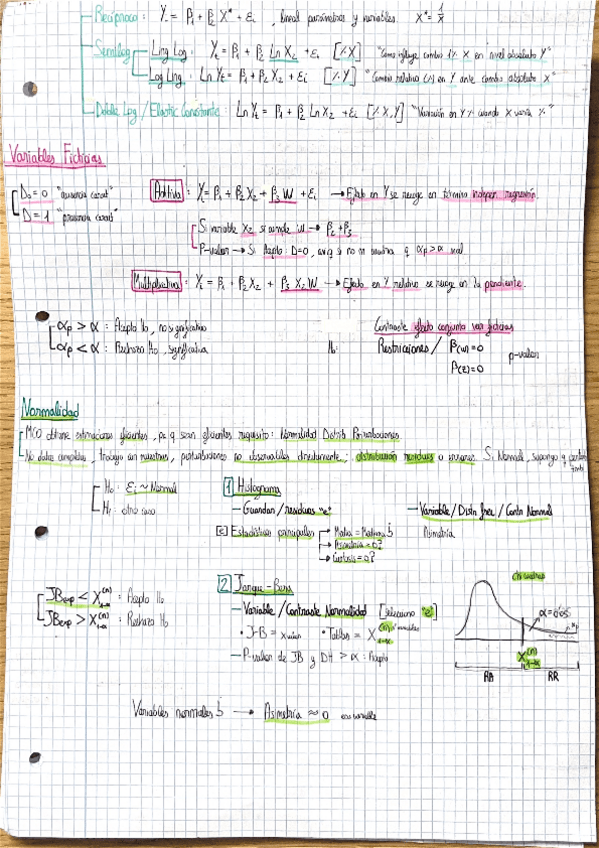 Recíproco : Yt = β1 + β2 X* + εi , lineal parámetros y variables. X* = 1/X
Semilog Ling Log : Yt = β1 + β2 Ln X2 + εi [%X] "Como influye cambio 1% X en nivel absoluto Y"
Log Ling : Ln Yt = β1 + β2 X2 + εi [%Y] "Cambio relativo (%) en Y ante cambio absoluto X"
Doble Log / Elastic Constante : Ln Yt = β1 + β2 Ln X2 + εi [%X,Y] "Variación en Y% cuando X varía %"
Variables Ficticias
D0 = 0 "ausencia caract"
D = 1 "presencia caract"
Aditiva : Yt = β1 + β2 X2 + β3 W + εi → Efecto en Y se recoge en término indepen. regresión.
Si variable X2 si cumple W → β2 + β3
P-valor → Si Acepto D=0 αp > α
Multiplicativa : Yt = β1 + β2 X2 + β3 X2 W → Efecto en Y relativo se recoge en la pendiente.
αp > α : Acepto H0, no significativa
αp < α : Rechazo H0, significativa
Contraste efecto conjunto var ficticias
H0: Restricciones / β(w) = 0
β(z) = 0
p-valor
Normalidad
MCO obtiene estimaciones eficientes, pa q sean eficientes requisito: Normalidad Distrib Perturbaciones.
No datos completos, trabajo con muestras, perturbaciones no observables directamente; distribución residuos o errores. Si Normal, supongo q
H0 : εi ~ Normal
H1 : otro caso
1 Histograma
— Guardar / residuos "e"
— Variable / Distr frec / Contr Normal
Asimetría
[C] Estadísticos principales → Media = Mediana
→ Asimetría = 0?
→ Curtosis = 0?
2 Jarque-Bera
JBexp < X(n)1-α : Acepto H0
JBexp > X(n)1-α : Rechazo H0
— Variable / Contraste Normalidad [selecciono "e"]
• J-B = • Tablas = X(n)1-α
— P-valor de JB y DH > α : Acepto
Chi cuadrado
α = 0'05
X(n)1-α
RA RR
Variables normales → Asimetría ≈ 0 esa variable